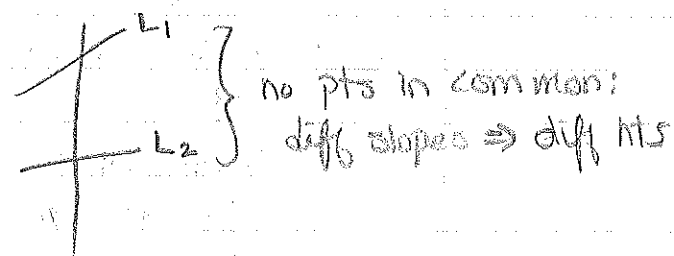 L1
no pts in common:
L2
diff slopes ⇒ diff hts